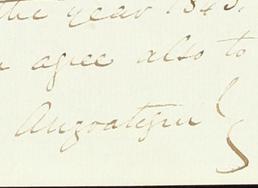 the year 1845.
agree also to
Anzoategui